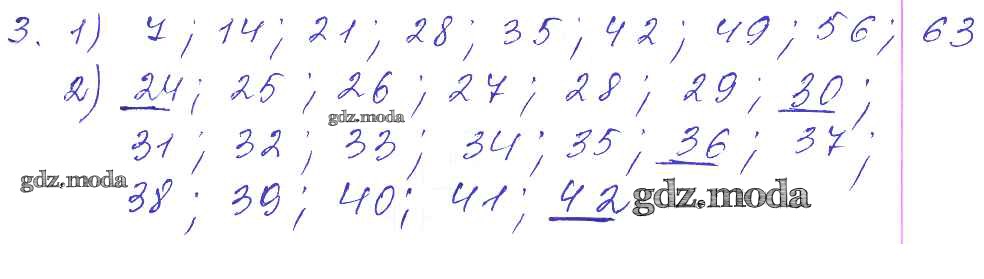 3. 1) 7; 14; 21; 28; 35; 42; 49; 56; 63
2) 24; 25; 26; 27; 28; 29; 30;
gdz.moda
31; 32; 33; 34; 35; 36; 37;
gdz.moda
38; 39; 40; 41; 42
gdz.moda